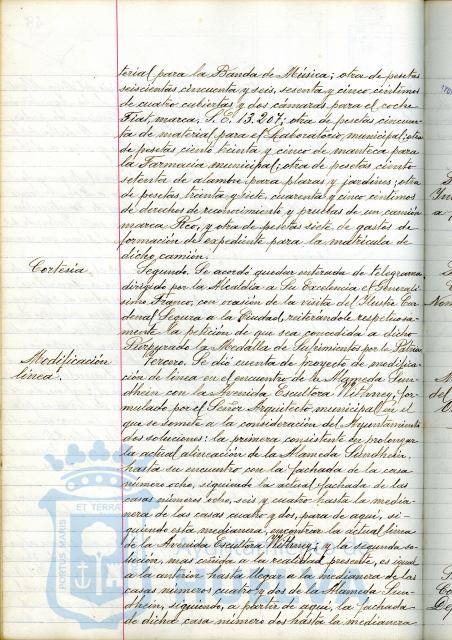 terial para la Banda de Música; otra de pesetas
seiscientas cincuenta y seis, sesenta y cinco céntimos
de cuatro cubiertas y dos cámaras para el coche
Fiat, marca, S.E. 13.207; otra de pesetas cincuen-
ta de material para el Laboratorio municipal; otra
de pesetas ciento treinta y cinco de manteca para
la Farmacia municipal; otra de pesetas ciento
setenta de alambre para plazas y jardines; otra
de pesetas, treinta y siete, cuarenta y cinco céntimos
de derechos de reconocimiento y pruebas de un camión
marca Reo, y otra de pesetas siete de gastos de
formación de expediente para la matrícula de
dicho camión.
Cortesía.
Segundo. Se acordó quedar enterada de telegrama
dirigido por la Alcaldía a Su Excelencia el Generalí-
simo Franco, con ocasión de la visita del Ilustre Car-
denal Segura a la Ciudad, reiterándole respetuosa-
mente la petición de que sea concedida a dicho
Purpurado la Medalla de Sufrimientos por la Patria.
Modificación
línea.
Tercero. Se dió cuenta de proyecto de modifica-
ción de línea en el encuentro de la Alameda Sun-
dhein con la Avenida Escultora Withney, for-
mulado por el Señor Arquitecto municipal en el
que se somete a la consideración del Ayuntamiento
dos soluciones: la primera consistente en prolongar
la actual alineación de la Alameda Sundhein,
hasta su encuentro con la fachada de la casa
número ocho, siguiendo la actual fachada de las
casas números ocho, seis y cuatro hasta la media-
nera de las casas cuatro y dos, para de aquí, si-
guiendo esta medianera, encontrar la actual línea
de la Avenida Escultora Withney; y la segunda so-
lución, mas ceñida a la realidad presente, es igual
a la anterior hasta llegar a la medianera de las
casas números cuatro y dos de la Alameda Sun-
dhein, siguiendo, a partir de aquí, la fachada
de dicha casa número dos hasta la medianera
PORTUS MARIS ET TERRAE